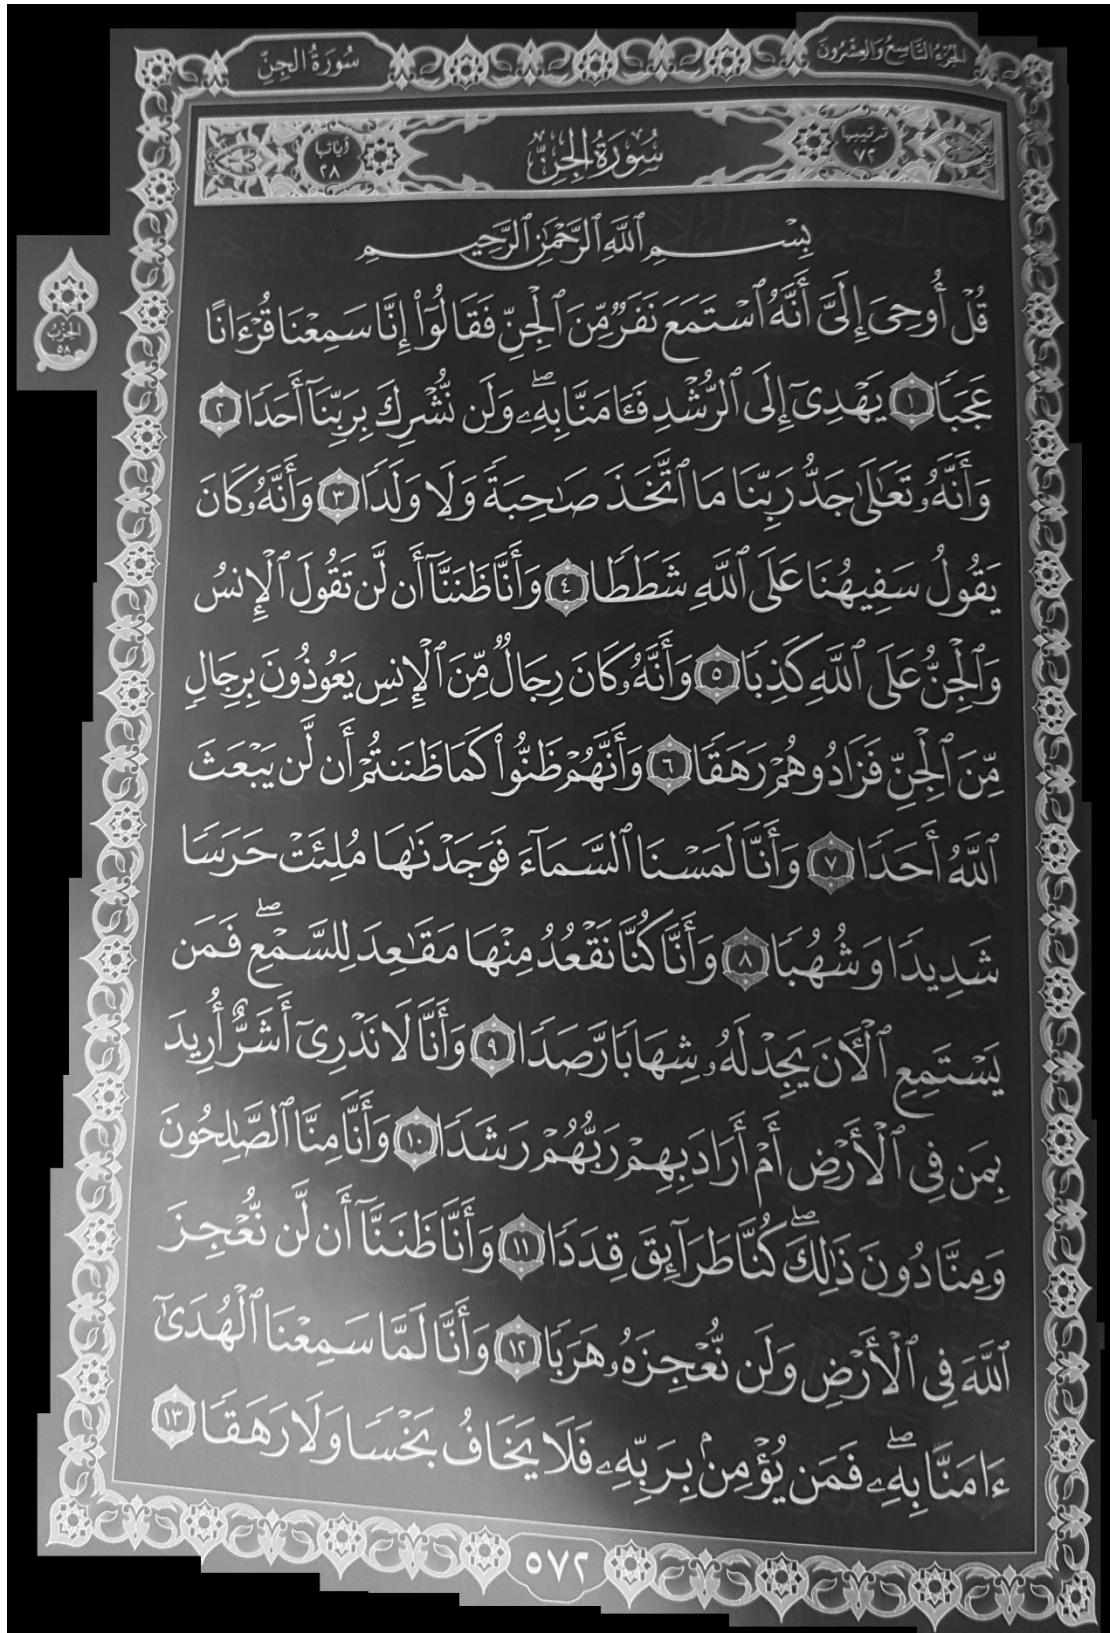 الجُزْءُ التَّاسِعُ وَالعِشْرُونَ
سُورَةُ الجِنِّ
ترتيبها ٧٢
سُورَةُ الجِنِّ
آياتها ٢٨
بِسْمِ ٱللَّهِ ٱلرَّحْمَٰنِ ٱلرَّحِيمِ
قُلْ أُوحِىَ إِلَىَّ أَنَّهُ ٱسْتَمَعَ نَفَرٌ مِّنَ ٱلْجِنِّ فَقَالُوٓا۟ إِنَّا سَمِعْنَا قُرْءَانًا
عَجَبًا ١ يَهْدِىٓ إِلَى ٱلرُّشْدِ فَـَٔامَنَّا بِهِۦ ۖ وَلَن نُّشْرِكَ بِرَبِّنَآ أَحَدًا ٢
وَأَنَّهُۥ تَعَٰلَىٰ جَدُّ رَبِّنَا مَا ٱتَّخَذَ صَٰحِبَةً وَلَا وَلَدًا ٣ وَأَنَّهُۥ كَانَ
يَقُولُ سَفِيهُنَا عَلَى ٱللَّهِ شَطَطًا ٤ وَأَنَّا ظَنَنَّآ أَن لَّن تَقُولَ ٱلْإِنسُ
وَٱلْجِنُّ عَلَى ٱللَّهِ كَذِبًا ٥ وَأَنَّهُۥ كَانَ رِجَالٌ مِّنَ ٱلْإِنسِ يَعُوذُونَ بِرِجَالٍ
مِّنَ ٱلْجِنِّ فَزَادُوهُمْ رَهَقًا ٦ وَأَنَّهُمْ ظَنُّوا۟ كَمَا ظَنَنتُمْ أَن لَّن يَبْعَثَ
ٱللَّهُ أَحَدًا ٧ وَأَنَّا لَمَسْنَا ٱلسَّمَآءَ فَوَجَدْنَٰهَا مُلِئَتْ حَرَسًا
شَدِيدًا وَشُهُبًا ٨ وَأَنَّا كُنَّا نَقْعُدُ مِنْهَا مَقَٰعِدَ لِلسَّمْعِ ۖ فَمَن
يَسْتَمِعِ ٱلْـَٔانَ يَجِدْ لَهُۥ شِهَابًا رَّصَدًا ٩ وَأَنَّا لَا نَدْرِىٓ أَشَرٌّ أُرِيدَ
بِمَن فِى ٱلْأَرْضِ أَمْ أَرَادَ بِهِمْ رَبُّهُمْ رَشَدًا ١٠ وَأَنَّا مِنَّا ٱلصَّٰلِحُونَ
وَمِنَّا دُونَ ذَٰلِكَ ۖ كُنَّا طَرَآئِقَ قِدَدًا ١١ وَأَنَّا ظَنَنَّآ أَن لَّن نُّعْجِزَ
ٱللَّهَ فِى ٱلْأَرْضِ وَلَن نُّعْجِزَهُۥ هَرَبًا ١٢ وَأَنَّا لَمَّا سَمِعْنَا ٱلْهُدَىٰٓ
ءَامَنَّا بِهِۦ ۖ فَمَن يُؤْمِنۢ بِرَبِّهِۦ فَلَا يَخَافُ بَخْسًا وَلَا رَهَقًا ١٣
الحِزْبُ
٥٨
٥٧٢